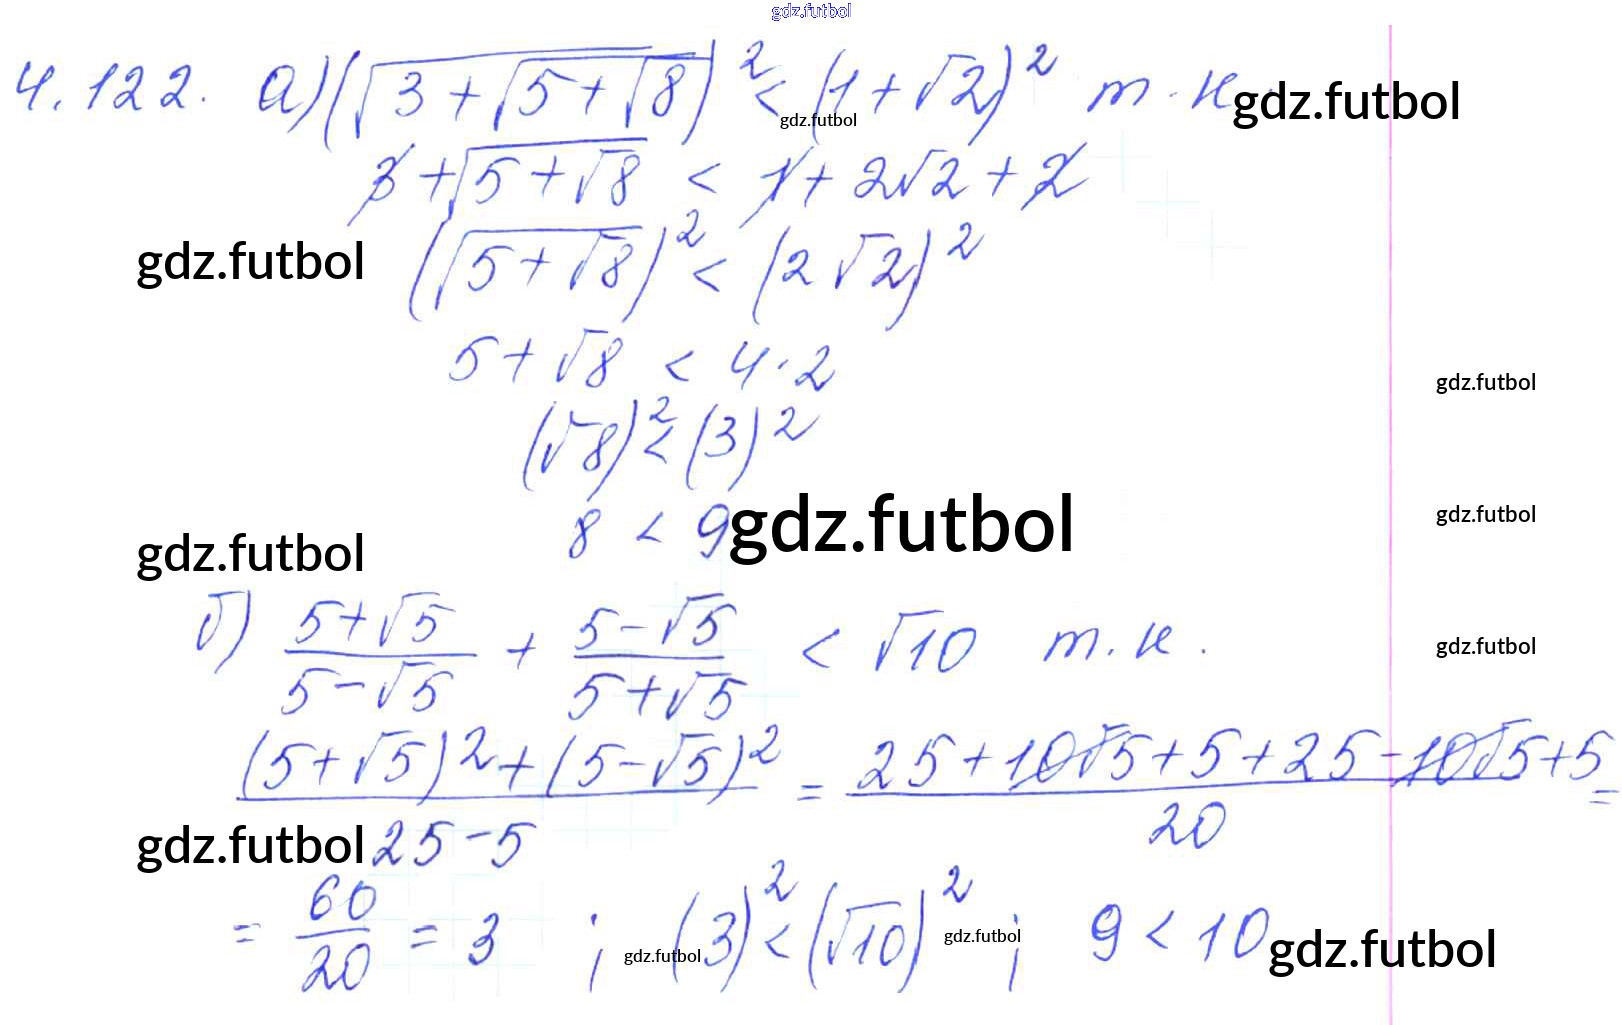 gdz.futbol
4.122. а) (√(3 + √(5 + √8)))² < (1 + √2)² т.к. gdz.futbol
gdz.futbol
3 + √(5 + √8) < 1 + 2√2 + 2
gdz.futbol (√(5 + √8))² < (2√2)²
5 + √8 < 4 · 2
gdz.futbol
(√8)² < (3)²
gdz.futbol
8 < 9 gdz.futbol
gdz.futbol
б) (5+√5)/(5-√5) + (5-√5)/(5+√5) < √10 т.к.
gdz.futbol
((5+√5)² + (5-√5)²)/(25-5) = (25+10√5+5+25-10√5+5)/20 =
gdz.futbol
= 60/20 = 3 ; (3)² < (√10)² ; 9 < 10 gdz.futbol
gdz.futbol gdz.futbol